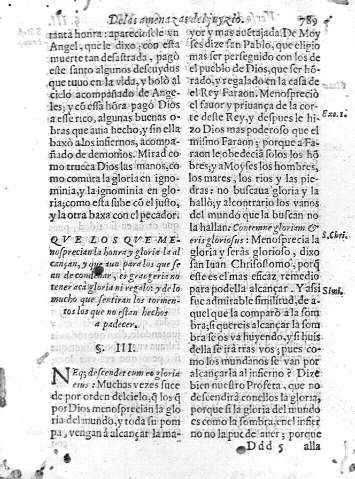 De las amenazas del juyzio. 789
tanta honra: apareciosele vn
Angel, que le dixo; con essa
muerte tan desastrada, pagò
este santo algunos descuydos
que tuuo en la vida, y boló al
cielo acompañado de Ange-
les; y cō essa hõra pagó Dios
a esse rico, algunas buenas o
bras que auia hecho, y sin ella
baxó a los infiernos, acompa-
ñado de demonios. Mirad co
mo trueca Dios las manos, co
mo comuta la gloria en igno-
minia, y la ignominia en glo-
ria; como esta sube cõ el justo,
y la otra baxa con el pecador.
QVE LOS QVE ME-
nosprecian la honra y gloria la al
cançan, y que aun para los que se
an de condenar, es grangeria no
tener aca gloria ni regalos; y de lo
mucho que sentiran los tormen-
tos los que no estan hechos
a padecer.
§. III.
NEq; descendet cum eo gloria
eius: Muchas vezes suce
de por orden del cielo, q̃ los q̃
por Dios menosprecian la glo
ria del mundo, y toda su pom
pa, vengan á alcançar la ma-
yor y mas auetajada. De Moy
ses dize san Pablo, que eligio
mas ser perseguido con los de
el pueblo de Dios, que ser hõ-
rado, y regalado en la casa de
el Rey Faraon. Menospreció
el fauor y priuança de la cor-
te deste Rey, y despues le hi-
zo Dios mas poderoso que el
mismo Faraon; porque a Fa-
raon le obedecia solos los hõ
bres, y a Moyses los hombres,
los mares, los rios y las pie-
dras: no buscaua gloria y la
halló; y al contrario los vanos
del mundo que la buscan no
la hallan: Contemne gloriam &
eris gloriosus: Menosprecia la
gloria y seràs glorioso, dixo
san Iuan Chrisostomo, porq̃
esse es el mas eficaz remedio
para podella alcançar. Y assi
fue admirable similitud, de a-
quel que la comparò a la som
bra; si quereis alcançar la som
bra se os va huyendo, y si huis
della se irá tras vos; pues co-
mo los mundanos se van por
alcançarla al infierno? Dize
bien nuestro Profeta, que no
descendirá con ellos la gloria,
porque si la gloria del mundo
es como la sombra, en el infier
no no la puede auer; porque
Ddd 5 alla
Exo. 1.
S. Chri.
Simi.